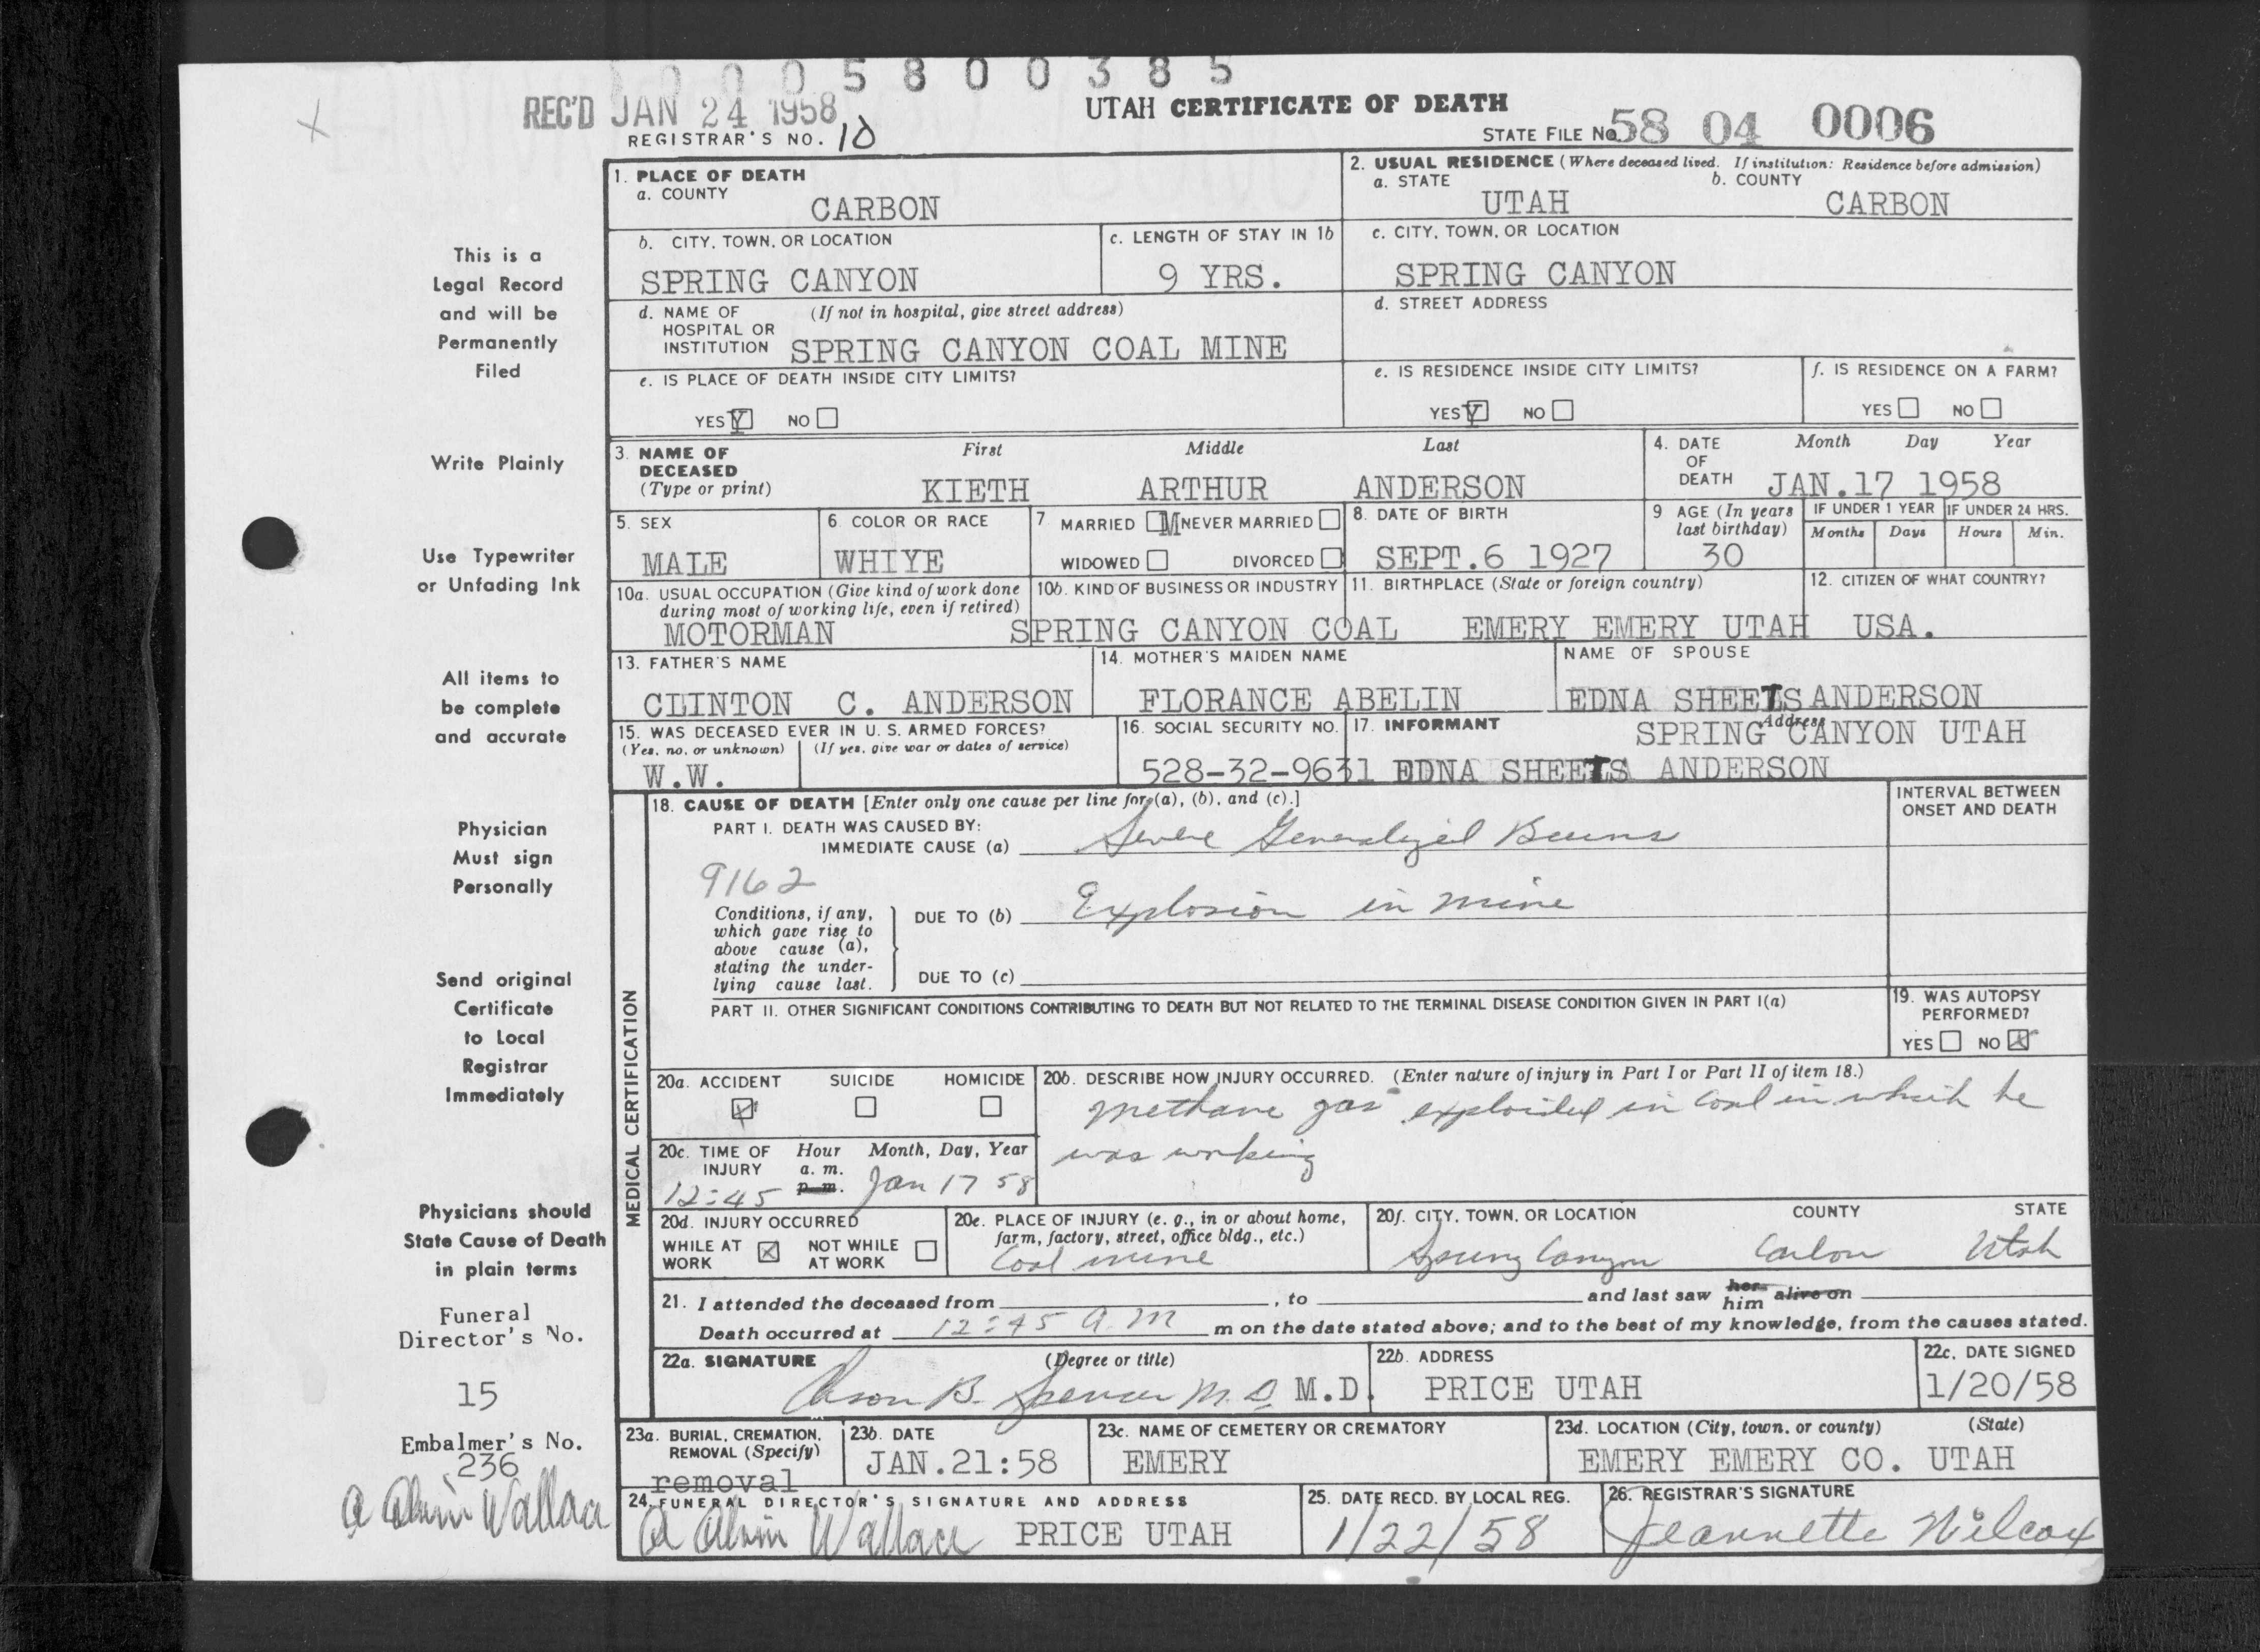 0005800385
REC'D JAN 24 1958
UTAH CERTIFICATE OF DEATH
REGISTRAR'S NO. 10
STATE FILE No. 58 04 0006
1. PLACE OF DEATH
a. COUNTY
CARBON
2. USUAL RESIDENCE (Where deceased lived. If institution: Residence before admission)
a. STATE b. COUNTY
UTAH CARBON
b. CITY, TOWN, OR LOCATION
SPRING CANYON
c. LENGTH OF STAY IN 1b
9 YRS.
c. CITY, TOWN, OR LOCATION
SPRING CANYON
d. NAME OF HOSPITAL OR INSTITUTION (If not in hospital, give street address)
SPRING CANYON COAL MINE
d. STREET ADDRESS
e. IS PLACE OF DEATH INSIDE CITY LIMITS?
YES Y NO
e. IS RESIDENCE INSIDE CITY LIMITS?
YES Y NO
f. IS RESIDENCE ON A FARM?
YES NO
3. NAME OF DECEASED (Type or print)
First Middle Last
KIETH ARTHUR ANDERSON
4. DATE OF DEATH
Month Day Year
JAN.17 1958
5. SEX
MALE
6. COLOR OR RACE
WHIYE
7. MARRIED M NEVER MARRIED
WIDOWED DIVORCED
8. DATE OF BIRTH
SEPT.6 1927
9 AGE (In years last birthday)
30
IF UNDER 1 YEAR IF UNDER 24 HRS.
Months Days Hours Min.
10a. USUAL OCCUPATION (Give kind of work done during most of working life, even if retired)
MOTORMAN
10b. KIND OF BUSINESS OR INDUSTRY
SPRING CANYON COAL
11. BIRTHPLACE (State or foreign country)
EMERY EMERY UTAH
12. CITIZEN OF WHAT COUNTRY?
USA.
13. FATHER'S NAME
CLINTON C. ANDERSON
14. MOTHER'S MAIDEN NAME
FLORANCE ABELIN
NAME OF SPOUSE
EDNA SHEETS ANDERSON
15. WAS DECEASED EVER IN U. S. ARMED FORCES?
(Yes, no, or unknown) (If yes, give war or dates of service)
W.W.
16. SOCIAL SECURITY NO.
528-32-9631
17. INFORMANT Address
SPRING CANYON UTAH
EDNA SHEETS ANDERSON
MEDICAL CERTIFICATION
18. CAUSE OF DEATH [Enter only one cause per line for (a), (b), and (c).]
INTERVAL BETWEEN ONSET AND DEATH
PART I. DEATH WAS CAUSED BY:
IMMEDIATE CAUSE (a) Severe Generalized Burns
9162
Conditions, if any, which gave rise to above cause (a), stating the underlying cause last.
DUE TO (b) Explosion in mine
DUE TO (c)
PART II. OTHER SIGNIFICANT CONDITIONS CONTRIBUTING TO DEATH BUT NOT RELATED TO THE TERMINAL DISEASE CONDITION GIVEN IN PART I(a)
19. WAS AUTOPSY PERFORMED?
YES NO X
20a. ACCIDENT SUICIDE HOMICIDE
X
20b. DESCRIBE HOW INJURY OCCURRED. (Enter nature of injury in Part I or Part II of item 18.)
methane gas exploided in coal in which he
was working
20c. TIME OF INJURY Hour Month, Day, Year
a. m.
p. m.
12:45 Jan 17 58
20d. INJURY OCCURRED
WHILE AT WORK X NOT WHILE AT WORK
20e. PLACE OF INJURY (e. g., in or about home, farm, factory, street, office bldg., etc.)
Coal mine
20f. CITY, TOWN, OR LOCATION COUNTY STATE
Spring Canyon Carbon Utah
21. I attended the deceased from , to and last saw her him alive on
Death occurred at 12:45 A.M m on the date stated above; and to the best of my knowledge, from the causes stated.
22a. SIGNATURE (Degree or title)
Orson B. Spencer M.D. M.D.
22b. ADDRESS
PRICE UTAH
22c. DATE SIGNED
1/20/58
23a. BURIAL, CREMATION, REMOVAL (Specify)
removal
23b. DATE
JAN.21:58
23c. NAME OF CEMETERY OR CREMATORY
EMERY
23d. LOCATION (City, town, or county) (State)
EMERY EMERY CO. UTAH
24. FUNERAL DIRECTOR'S SIGNATURE AND ADDRESS
A Alvin Wallace PRICE UTAH
25. DATE RECD. BY LOCAL REG.
1/22/58
26. REGISTRAR'S SIGNATURE
Jeannette Wilcox
This is a
Legal Record
and will be
Permanently
Filed
Write Plainly
Use Typewriter
or Unfading Ink
All items to
be complete
and accurate
Physician
Must sign
Personally
Send original
Certificate
to Local
Registrar
Immediately
Physicians should
State Cause of Death
in plain terms
Funeral
Director's No.
15
Embalmer's No.
236
A Alvin Wallace